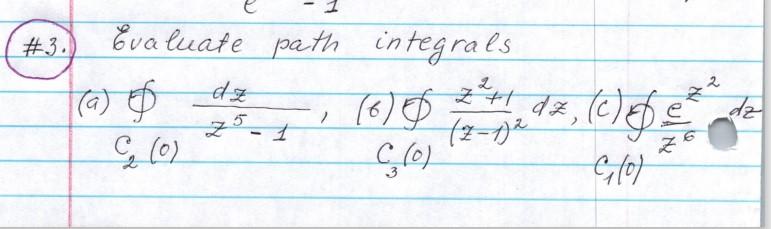 e - 1
#3. Evaluate path integrals
(a) ∮_{C_2(0)} dz/(z^5 - 1), (b) ∮_{C_3(0)} (z^2+1)/(z-1)^2 dz, (c) ∮_{C_1(0)} e^{z^2}/z^6 dz